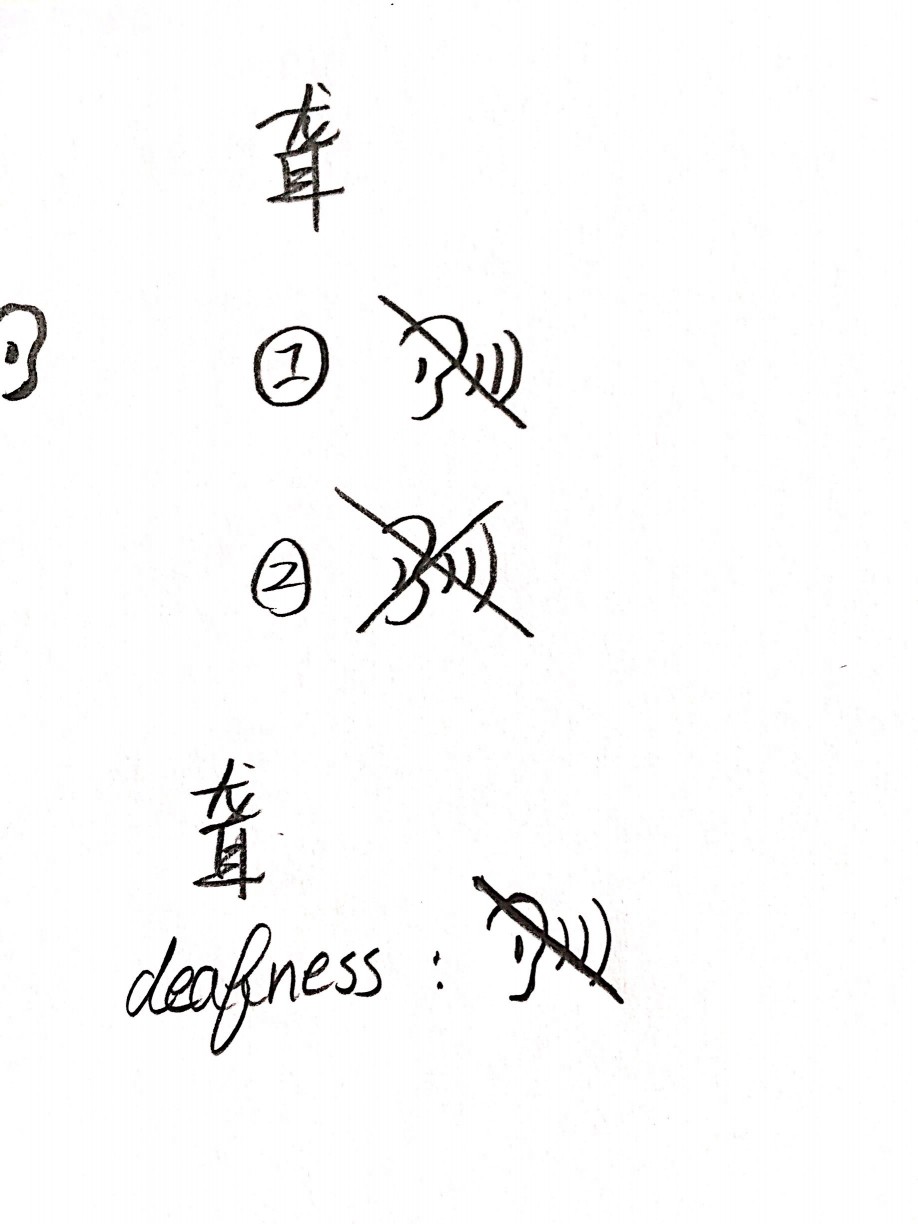 聋
①
②
聋
deafness :